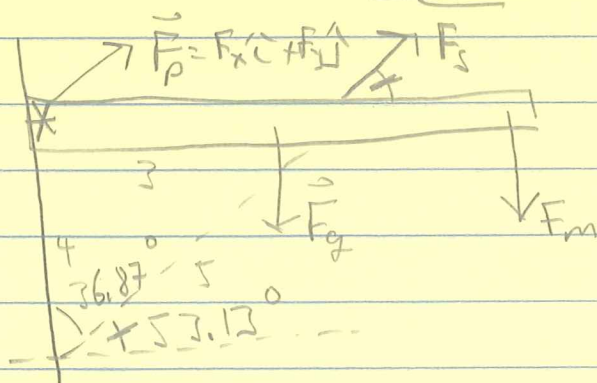 F⃗p = Fxî + Fyĵ
Fs
3
F⃗g
Fm
4
36.87°
5
53.13°